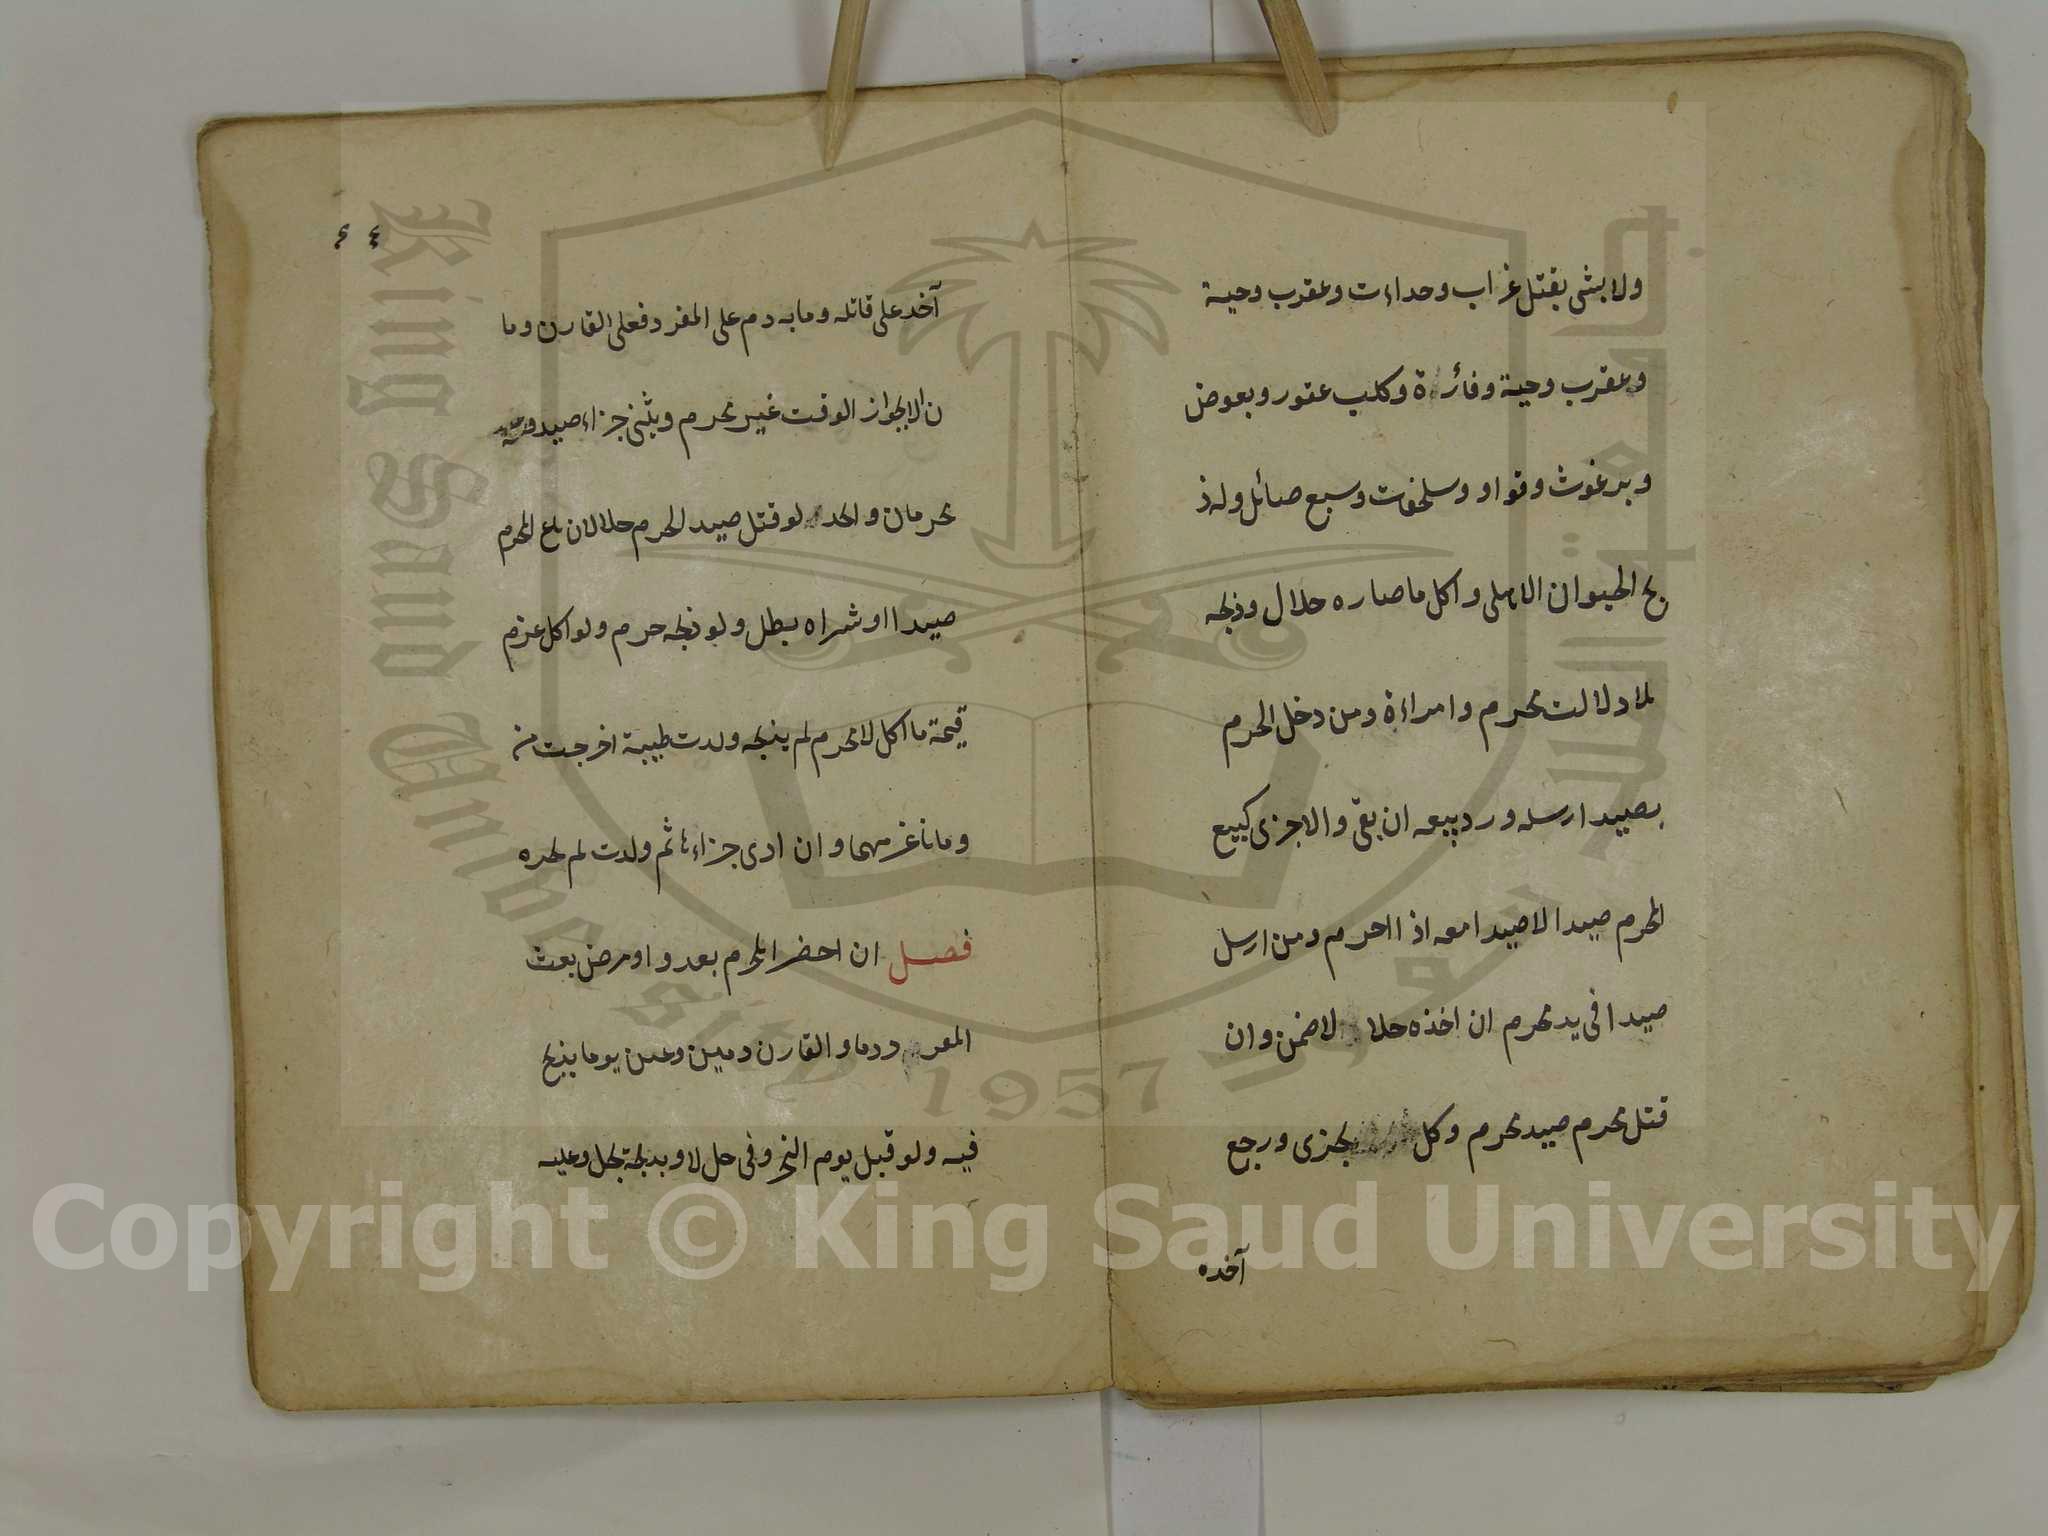 ولا بشی بقتل غراب وحداءت وعقرب وحية
وعقرب وحية وفائرة وكلب عقور وبعوض
وبرغوث وقواد وسلحفات وسبع صائل وله ذ
بح الحيوان الاهلى واكل ما صاره حلال وذبحه
بلا دلالت محرم وامراءة ومن دخل الحرم
بصيد ارسله ورد بيعه ان بقى والا جزى كبيع
المحرم صيدا لا صيدا معه اذا احرم ومن ارسل
صيدا فى يد محرم ان اخذه حلالا ضمن وان
قتل محرم صيد محرم وكل يجزى ورجع
آخذه
٤٤
آخد على قاتله وما به دم على المفرد فعلى القارن وما
ن الا بجواز الوقت غير محرم ويثنى جزاء صيد
محرمان والحد لو قتل صيد الحرم حلالان باع المحرم
صيدا او شراه بطل ولو ذبحه حرم ولو اكل غرم
قيمة ما اكل لا محرم لم يذبحه ولدت ظبية اخرجت من
وماتا غرمهما وان ادى جزاءها ثم ولدت لم
فصل ان احضر المحرم بعدو او مرض بعث
المفرد دما والقارن دمين وعين يوما يذبح
فيه ولو قبل يوم النحر وفى حل لا وبذبحه يحل وعليه
Copyright © King Saud University
King Saud University
جامعة الملك سعود
1957